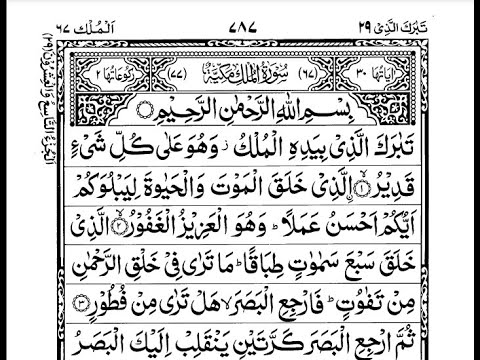 تَبٰرَكَ الَّذِىْ ٢٩
٧٨٧
اَلْمُلْك ٦٧
اٰيَاتُهَا ٣٠
(٦٧) سُوْرَةُ الْمُلْكِ مَكِّيَّةٌ (٧٧)
رُكُوْعَاتُهَا ٢
بِسْمِ اللّٰهِ الرَّحْمٰنِ الرَّحِيْمِ
تَبٰرَكَ الَّذِىْ بِيَدِهِ الْمُلْكُ ز وَهُوَ عَلٰى كُلِّ شَىْءٍ
قَدِيْرُ ۙ﴿١﴾ اِۨلَّذِىْ خَلَقَ الْمَوْتَ وَالْحَيٰوةَ لِيَبْلُوَكُمْ
اَيُّكُمْ اَحْسَنُ عَمَلًا ؕ وَهُوَ الْعَزِيْزُ الْغَفُوْرُ ۙ﴿٢﴾ الَّذِىْ
خَلَقَ سَبْعَ سَمٰوٰتٍ طِبَاقًا ؕ مَا تَرٰى فِىْ خَلْقِ الرَّحْمٰنِ
مِنْ تَفٰوُتٍ ؕ فَارْجِعِ الْبَصَرَ ۙ هَلْ تَرٰى مِنْ فُطُوْرٍ ﴿٣﴾
ثُمَّ ارْجِعِ الْبَصَرَ كَرَّتَيْنِ يَنْقَلِبْ اِلَيْكَ الْبَصَرُ